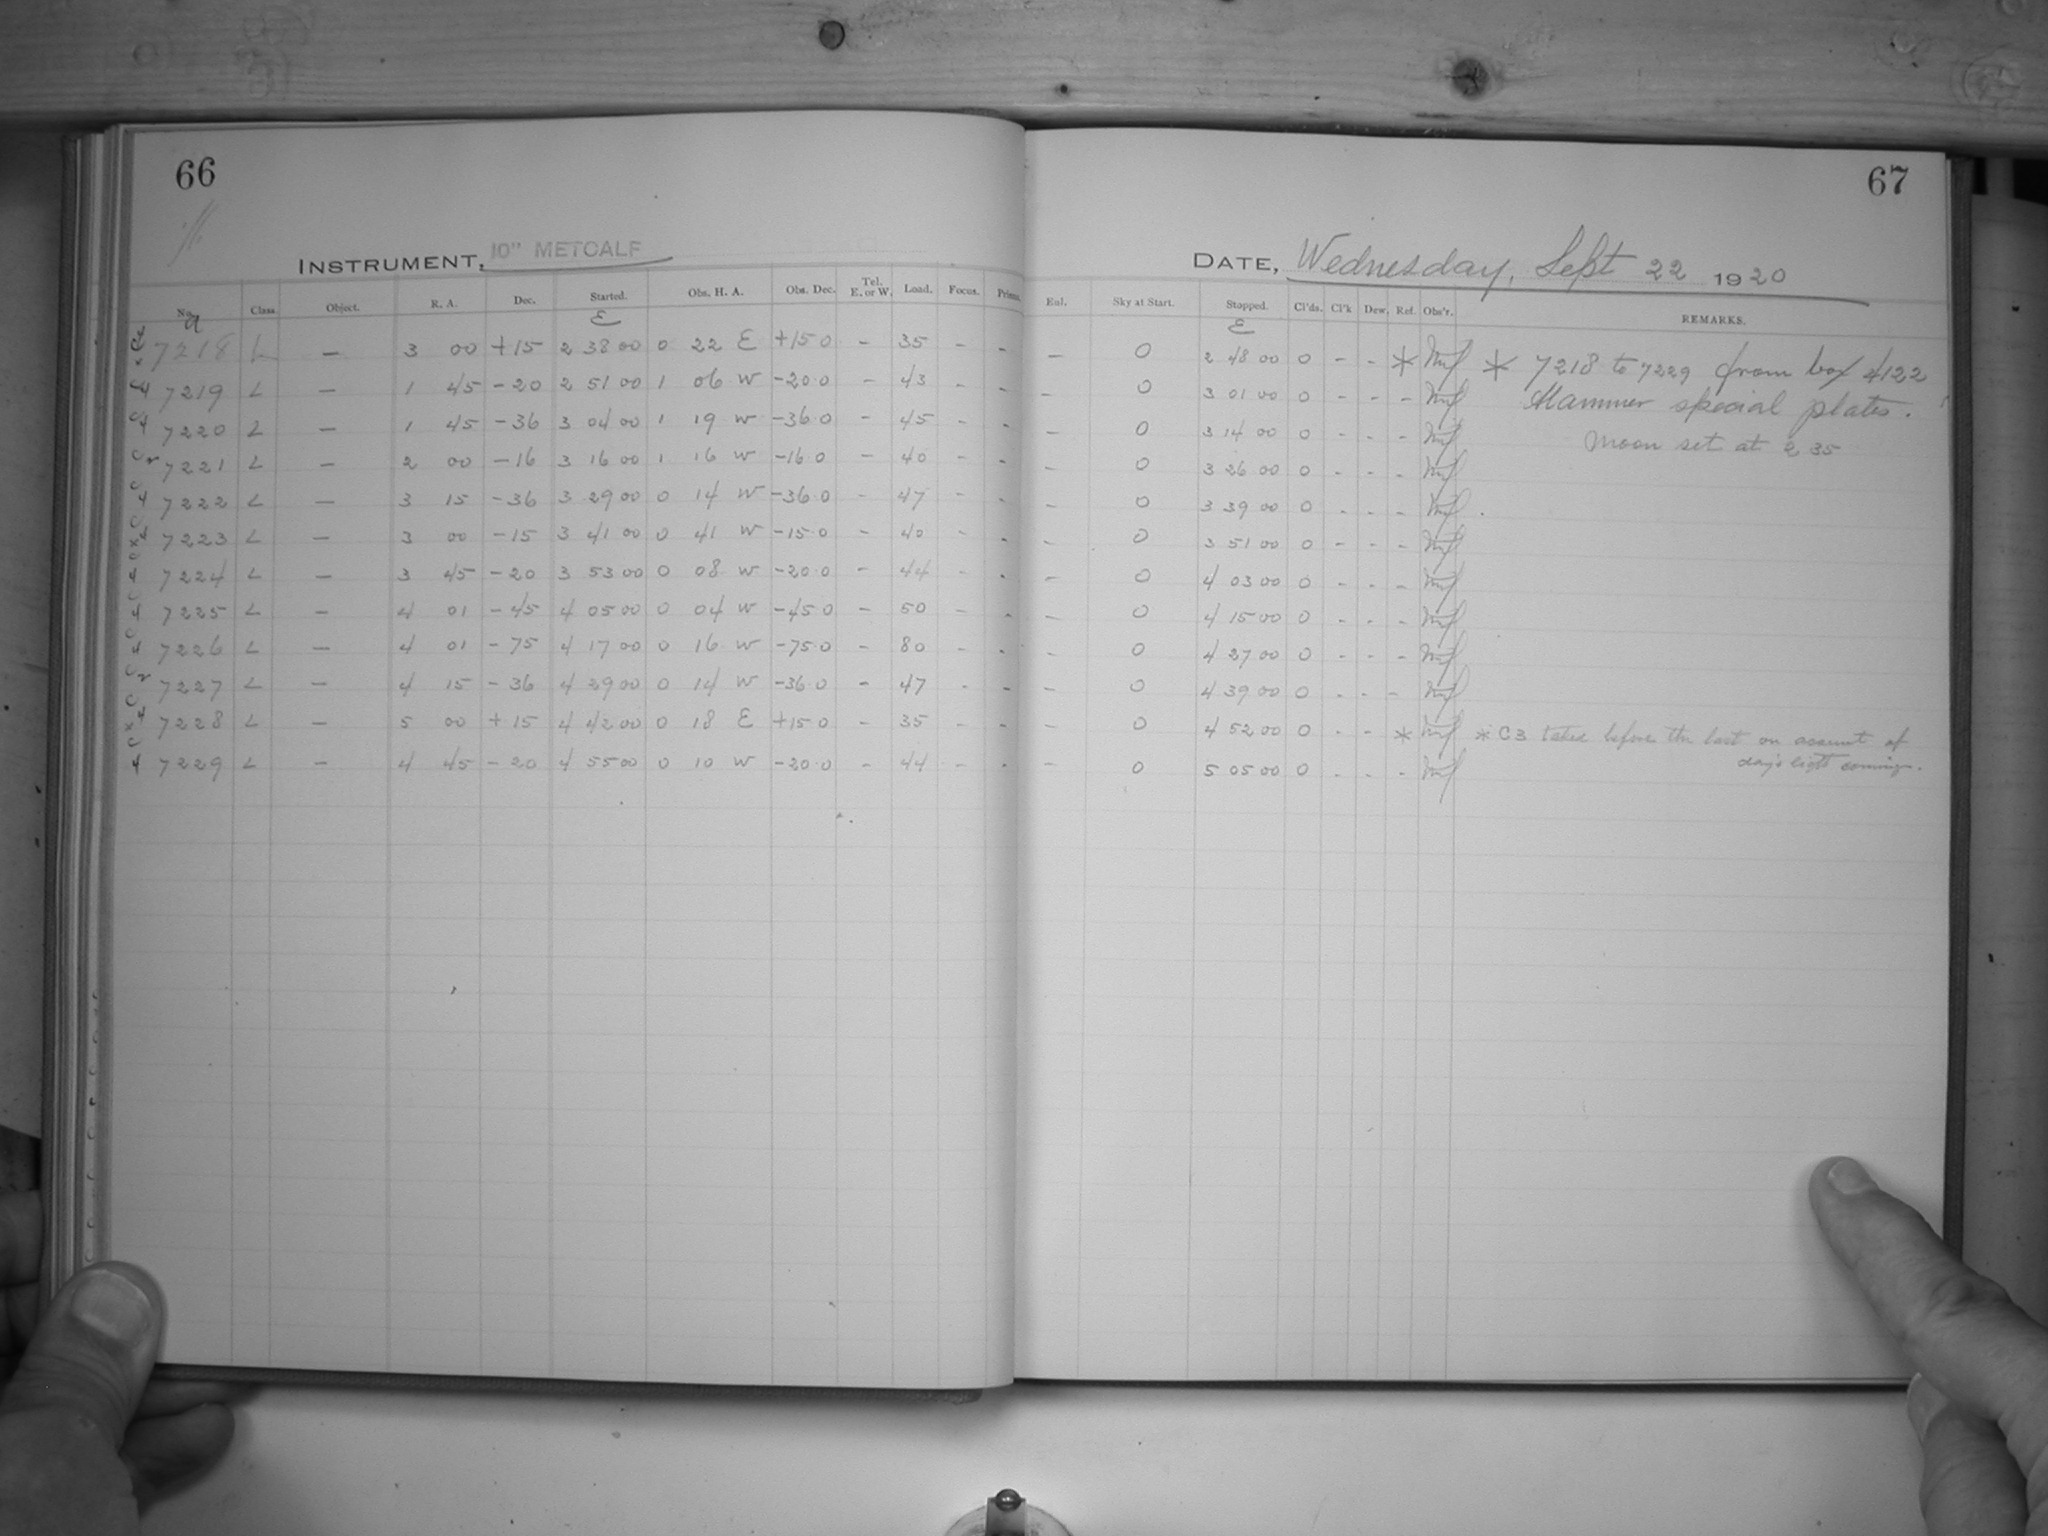 66
INSTRUMENT, 10" METCALF
No. Class. Object. R. A. Dec. Started. Obs. H. A. Obs. Dec. Tel. E. or W. Load. Focus. Prisms.
a E
7218 L — 3 00 +15 2 38 00 0 22 E +15 0 - 35 - -
7219 L — 1 45 -20 2 51 00 1 06 W -20 0 - 43 - -
7220 L — 1 45 -36 3 04 00 1 19 W -36 0 - 45 - -
7221 L — 2 00 -16 3 16 00 1 16 W -16 0 - 40 - -
7222 L — 3 15 -36 3 29 00 0 14 W -36 0 - 47 - -
7223 L — 3 00 -15 3 41 00 0 41 W -15 0 - 40 - -
7224 L — 3 45 -20 3 53 00 0 08 W -20 0 - 44 - -
7225 L — 4 01 -45 4 05 00 0 04 W -45 0 - 50 - -
7226 L — 4 01 -75 4 17 00 0 16 W -75 0 - 80 - -
7227 L — 4 15 -36 4 29 00 0 14 W -36 0 - 47 - -
7228 L — 5 00 +15 4 42 00 0 18 E +15 0 - 35 - -
7229 L — 4 45 -20 4 55 00 0 10 W -20 0 - 44 - -
67
DATE, Wednesday, Sept 22 1920
Eul. Sky at Start. Stopped. Cl'ds. Cl'k Dew. Ref. Obs'r. REMARKS.
E
— 0 2 48 00 0 - - * * 7218 to 7229 from box 4122
- 0 3 01 00 0 - - - Hammer special plates.
- 0 3 14 00 0 - - - Moon set at 2 35
- 0 3 26 00 0 - - -
- 0 3 39 00 0 - - -
- 0 3 51 00 0 - - -
- 0 4 03 00 0 - - -
- 0 4 15 00 0 - - -
- 0 4 27 00 0 - - -
- 0 4 39 00 0 - - -
- 0 4 52 00 0 - - * * C3 taken before the last on account of
day's light coming.
- 0 5 05 00 0 - - -